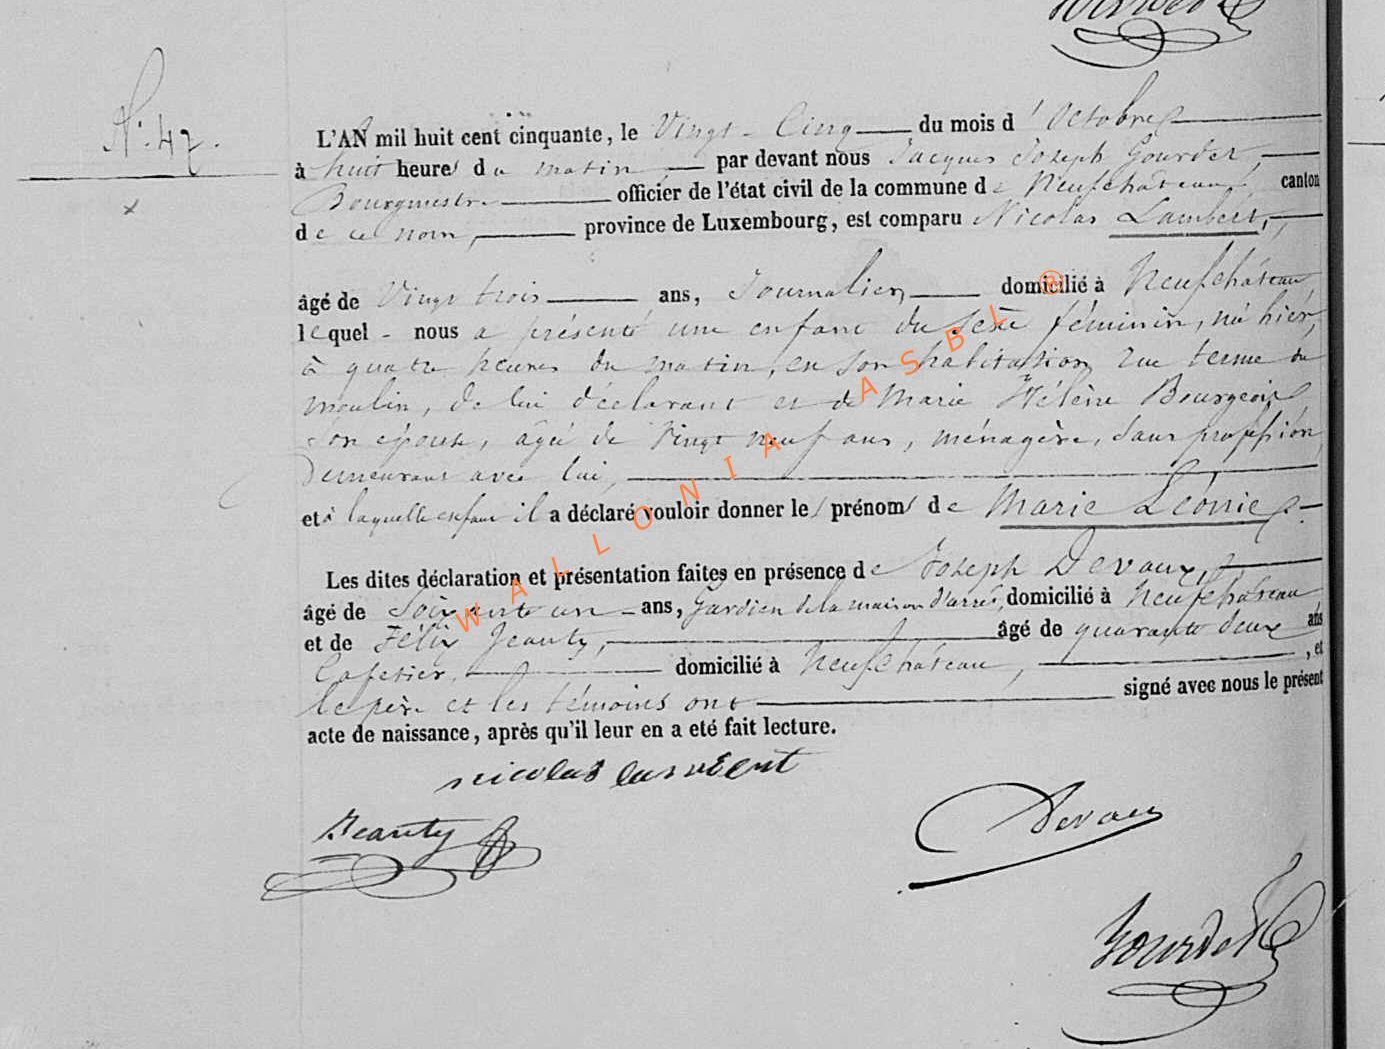 Gourdet
N° 47.
L'AN mil huit cent cinquante, le Vingt-Cinq du mois d'Octobre
à huit heures du matin, par devant nous Jacques Joseph Gourdet,
Bourgmestre officier de l'état civil de la commune de Neufchâteau, canton
de ce nom, province de Luxembourg, est comparu Nicolas Lambert,
âgé de Vingt trois ans, Journalier domicilié à Neufchâteau
lequel - nous a présenté une enfant du sexe féminin, né hier,
à quatre heures du matin, en son habitation rue terme du
moulin, de lui déclarant et de Marie Hélène Bourgeois
son épouse, âgée de Vingt neuf ans, ménagère, sans profession,
Demeurant avec lui,
et à laquelle enfant il a déclaré vouloir donner les prénoms de Marie Léonie.
Les dites déclaration et présentation faites en présence de Joseph Devaux,
âgé de Soixante un - ans, Gardien de la maison d'arrêt, domicilié à Neufchâteau
et de Félix Jeanty, âgé de quarante deux ans
Cafetier, domicilié à Neufchâteau, , et
le père et les témoins ont signé avec nous le présent
acte de naissance, après qu'il leur en a eté fait lecture.
nicolas lambert
Jeanty
Devaux
Gourdet
WALLONIA ASBL ®